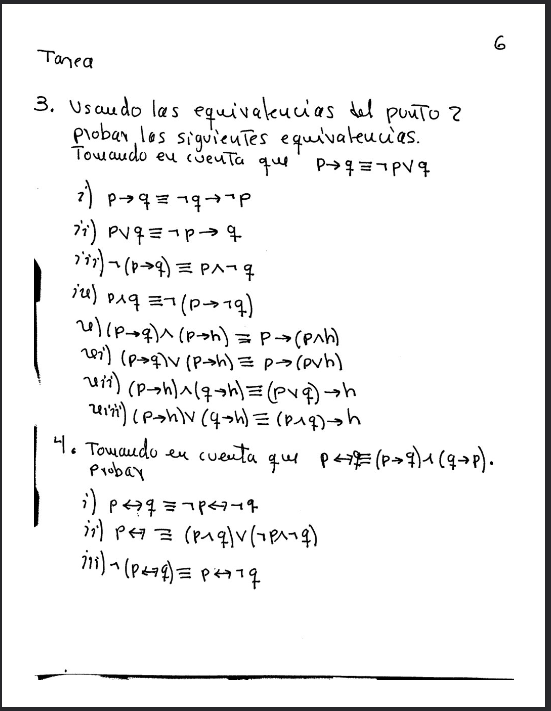 6
Tarea
3. Usando las equivalencias del punto 2
probar las siguientes equivalencias.
Tomando en cuenta que p→q≡¬p∨q
i) p→q≡¬q→¬p
ii) p∨q≡¬p→q
iii) ¬(p→q)≡p∧¬q
iv) p∧q≡¬(p→¬q)
v) (p→q)∧(p→h)≡p→(p∧h)
vi) (p→q)∨(p→h)≡p→(p∨h)
vii) (p→h)∧(q→h)≡(p∨q)→h
viii) (p→h)∨(q→h)≡(p∧q)→h
4. Tomando en cuenta que p↔q≡(p→q)∧(q→p).
probar
i) p↔q≡¬p↔¬q
ii) p↔≡(p∧q)∨(¬p∧¬q)
iii) ¬(p↔q)≡p↔¬q